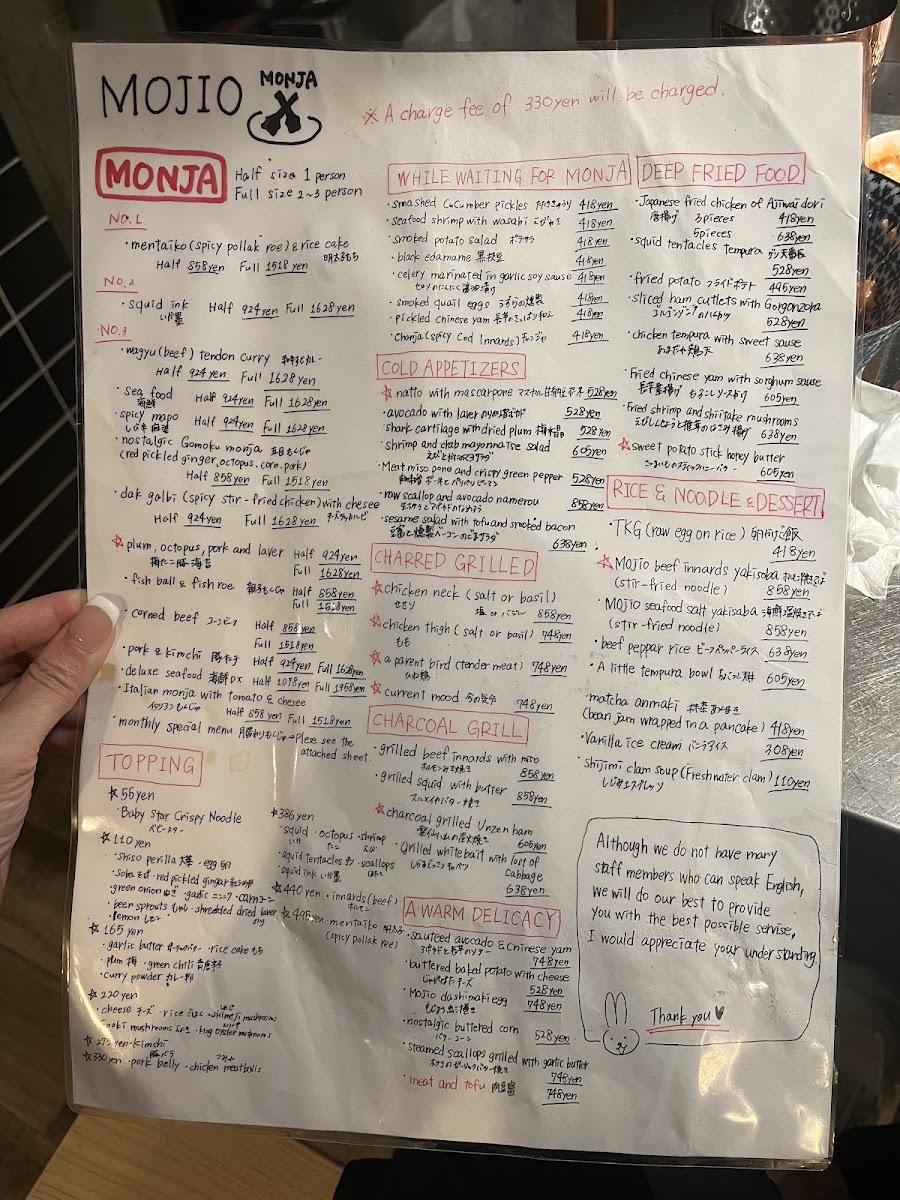 MOJIO MONJA
※ A charge fee of 330yen will be charged.
MONJA
Half size 1 person
Full size 2~3 person
NO.1
・mentaiko (spicy pollak roe) & rice cake
明太もち
Half 858yen Full 1518yen
NO.2
・squid ink Half 924yen Full 1628yen
いか墨
NO.3
・wagyu (beef) tendon curry
Half 924yen Full 1628yen
・sea food Half 924yen Full 1628yen
海鮮
・spicy mapo Half 924yen Full 1628yen
・nostalgic Gomoku monja 五目もんじゃ
(red pickled ginger, octopus, corn, pork)
Half 858yen Full 1518yen
・dak galbi (spicy stir-fried chicken) with chesee
Half 924yen Full 1628yen
☆plum, octopus, pork and laver Half 924yen
梅たこ豚海苔 Full 1628yen
・fish ball & fish roe Half 858yen
Full 1518yen
・corned beef コーンビーフ Half 858yen
Full 1518yen
・pork & kimchi 豚キムチ Half 924yen Full 1628yen
・deluxe seafood 海鮮DX Half 1078yen Full 1958yen
・Italian monja with tomato & chesee
イタリアンもんじゃ Half 858yen Full 1518yen
・monthly special menu 月替わりもんじゃ→Please see the
attached sheet.
TOPPING
☆55yen
・Baby Star Crispy Noodle
ベビースター
☆110yen
・shiso perilla 大葉・egg 卵
・soba そば・red pickled gingar
・green onion ねぎ・garlic ニンニク・corn コーン
・been sprouts もやし・shredded dried laver
のり
・lemon レモン
☆165yen
・garlic butter ガーリックバター・rice cake もち
・plum 梅・green chili 青唐辛子
・curry powder カレー粉
☆220yen
・cheese チーズ・rice ごはん・shimeji mushrooms
・enoki mushrooms えのき・king oyster mushrooms
☆275yen・kimchi
☆330yen・pork belly 豚バラ・chicken meatballs
☆386yen
・squid いか・octopus たこ・shrimp えび
・squid tentacles ゲソ・scallops
・squid ink いか墨
☆440yen・innards (beef)
ホルモン
☆495yen・mentaiko 明太子
(spicy pollak roe)
WHILE WAITING FOR MONJA
・smashed CuCumber pickles 418yen
・seafood shrimp with wasabi 418yen
・smoked potato salad ポテサラ 418yen
・black edamame 黒枝豆 418yen
・celery marinated in garlic soy sause 418yen
セロリにんにく醤油漬け
・smoked quail eggs うずらの燻製 418yen
・pickled chinese yam 418yen
・Chonja (spicy Cod Innards) チャンジャ 418yen
COLD APPETIZERS
☆natto with mascarpone 528yen
・avocado with laver 528yen
・shark cartilage with dried plum 梅水晶 528yen
・shrimp and club mayonnaise salad 605yen
・Meat miso pone and crispy green pepper 528yen
・raw scallop and avocado namerou 858yen
・sesame salad with tofu and smoked bacon
豆腐と燻製ベーコンのごまサラダ 638yen
CHARRED GRILLED
☆chicken neck (salt or basil)
せせり 塩 or バジル 858yen
☆chicken thigh (salt or basil) 748yen
もも
☆a parent bird (tender meat) 748yen
ひね鶏
☆current mood 今の気分 748yen
CHARCOAL GRILL
・grilled beef innards with miso
ホルモンみそ焼き 858yen
・grilled squid with butter
スルメイカバター焼き 858yen
☆charcoal grilled Unzen ham
605yen
・Grilled whitebait with loot of
Cabbage
638yen
A WARM DELICACY
・sauteed avocado & Chinese yam
748yen
・buttered baked potato with cheese
じゃがバタチーズ 528yen
・Mojio dashimaki egg 748yen
・nostalgic buttered corn
バターコーン 528yen
・steamed scallops grilled with garlic butter
748yen
・meat and tofu 肉豆腐 748yen
DEEP FRIED FOOD
・Japanese fried chicken of Ajiwai dori
唐揚げ 3pieces 418yen
5pieces 638yen
・squid tentacles tempura ゲソ天
528yen
・fried potato フライドポテト 495yen
・sliced ham cutlets with Gorgonzora
528yen
・chicken tempura with sweet sause
638yen
・Fried chinese yam with sorghum sause
605yen
・fried shrimp and shiitake mushrooms
638yen
☆sweet potato stick honey butter
605yen
RICE & NOODLE & DESSERT
・TKG (raw egg on rice) 卵かけご飯
418yen
☆Mojio beef innards yakisoba
(stir-fried noodle) 858yen
・MOJIO seafood salt yakisaba 海鮮塩焼きそば
(stir-fried noodle) 858yen
・beef peppar rice ビーフペッパーライス 638yen
・A little tempura bowl 605yen
・matcha anmaki 抹茶あん巻き
(bean jam wrapped in a pancake) 418yen
・Vanilla ice cream バニラアイス 308yen
・Shijimi clam soup (Freshwater clam) 110yen
しじみエスプレッソ
Although we do not have many
staff members who can speak English,
we will do our best to provide
you with the best possible servise,
I would appreciate your understanding.
Thank you♥